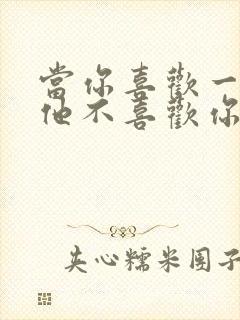 當你喜歡一
他不喜歡你
夹心糯米团子